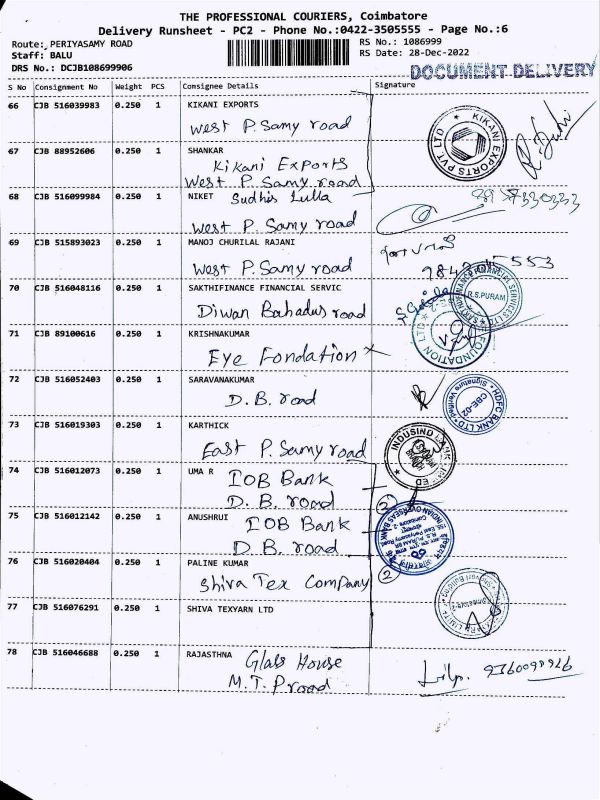 THE PROFESSIONAL COURIERS, Coimbatore
Delivery Runsheet - PC2 - Phone No.:0422-3505555 - Page No.:6
Route: PERIYASAMY ROAD
Staff: BALU
DRS No.: DCJB108699906
RS No.: 1086999
RS Date: 28-Dec-2022
DOCUMENT DELIVERY
S No Consignment No Weight PCS Consignee Details Signature
66 CJB 516039983 0.250 1 KIKANI EXPORTS
West P. Samy road
KIKANI EXPORTS PVT LTD
67 CJB 88952606 0.250 1 SHANKAR
Kikani Exports
West P. Samy road
68 CJB 516099984 0.250 1 NIKET Sudhis Lulla
West P. Samy road
69 CJB 515893023 0.250 1 MANOJ CHURILAL RAJANI
West P. Samy road
70 CJB 516048116 0.250 1 SAKTHIFINANCE FINANCIAL SERVIC
Diwan Bahadus road
R.S.PURAM
71 CJB 89100616 0.250 1 KRISHNAKUMAR
Eye Fondation
FOUNDATION LTD
72 CJB 516052403 0.250 1 SARAVANAKUMAR
D. B. road
HDFC BANK LTD
Signature Verified
CBE-02
73 CJB 516019303 0.250 1 KARTHICK
East P. Samy road
INDUSIND
74 CJB 516012073 0.250 1 UMA R IOB Bank
D. B. road
2
75 CJB 516012142 0.250 1 ANUSHRUI IOB Bank
D. B. road
INDIAN OVERSEAS BANK
2
76 CJB 516020404 0.250 1 PALINE KUMAR
Shiva Tex Company
77 CJB 516076291 0.250 1 SHIVA TEXYARN LTD
78 CJB 516046688 0.250 1 RAJASTHNA Glass House
M. T. P road